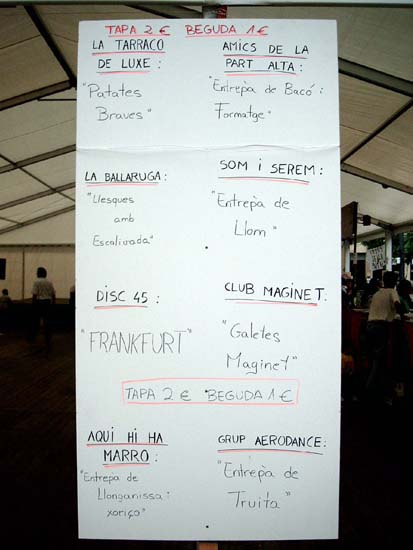 TAPA 2 € BEGUDA 1 €
LA TARRACO
DE LUXE :
"Patates
Braves"
AMICS DE LA
PART ALTA :
"Entrepà de Bacó i
Formatge"
LA BALLARUGA :
"Llesques
amb
Escalivada"
SOM i SEREM :
"Entrepà de
Llom"
DISC 45 :
"FRANKFURT"
CLUB MAGINET :
"Galetes
Maginet"
TAPA 2 € BEGUDA 1 €
AQUI HI HA
MARRO :
"Entrepà de
Llonganissa i
xoriço"
GRUP AERODANCE :
"Entrepà de
Truita"